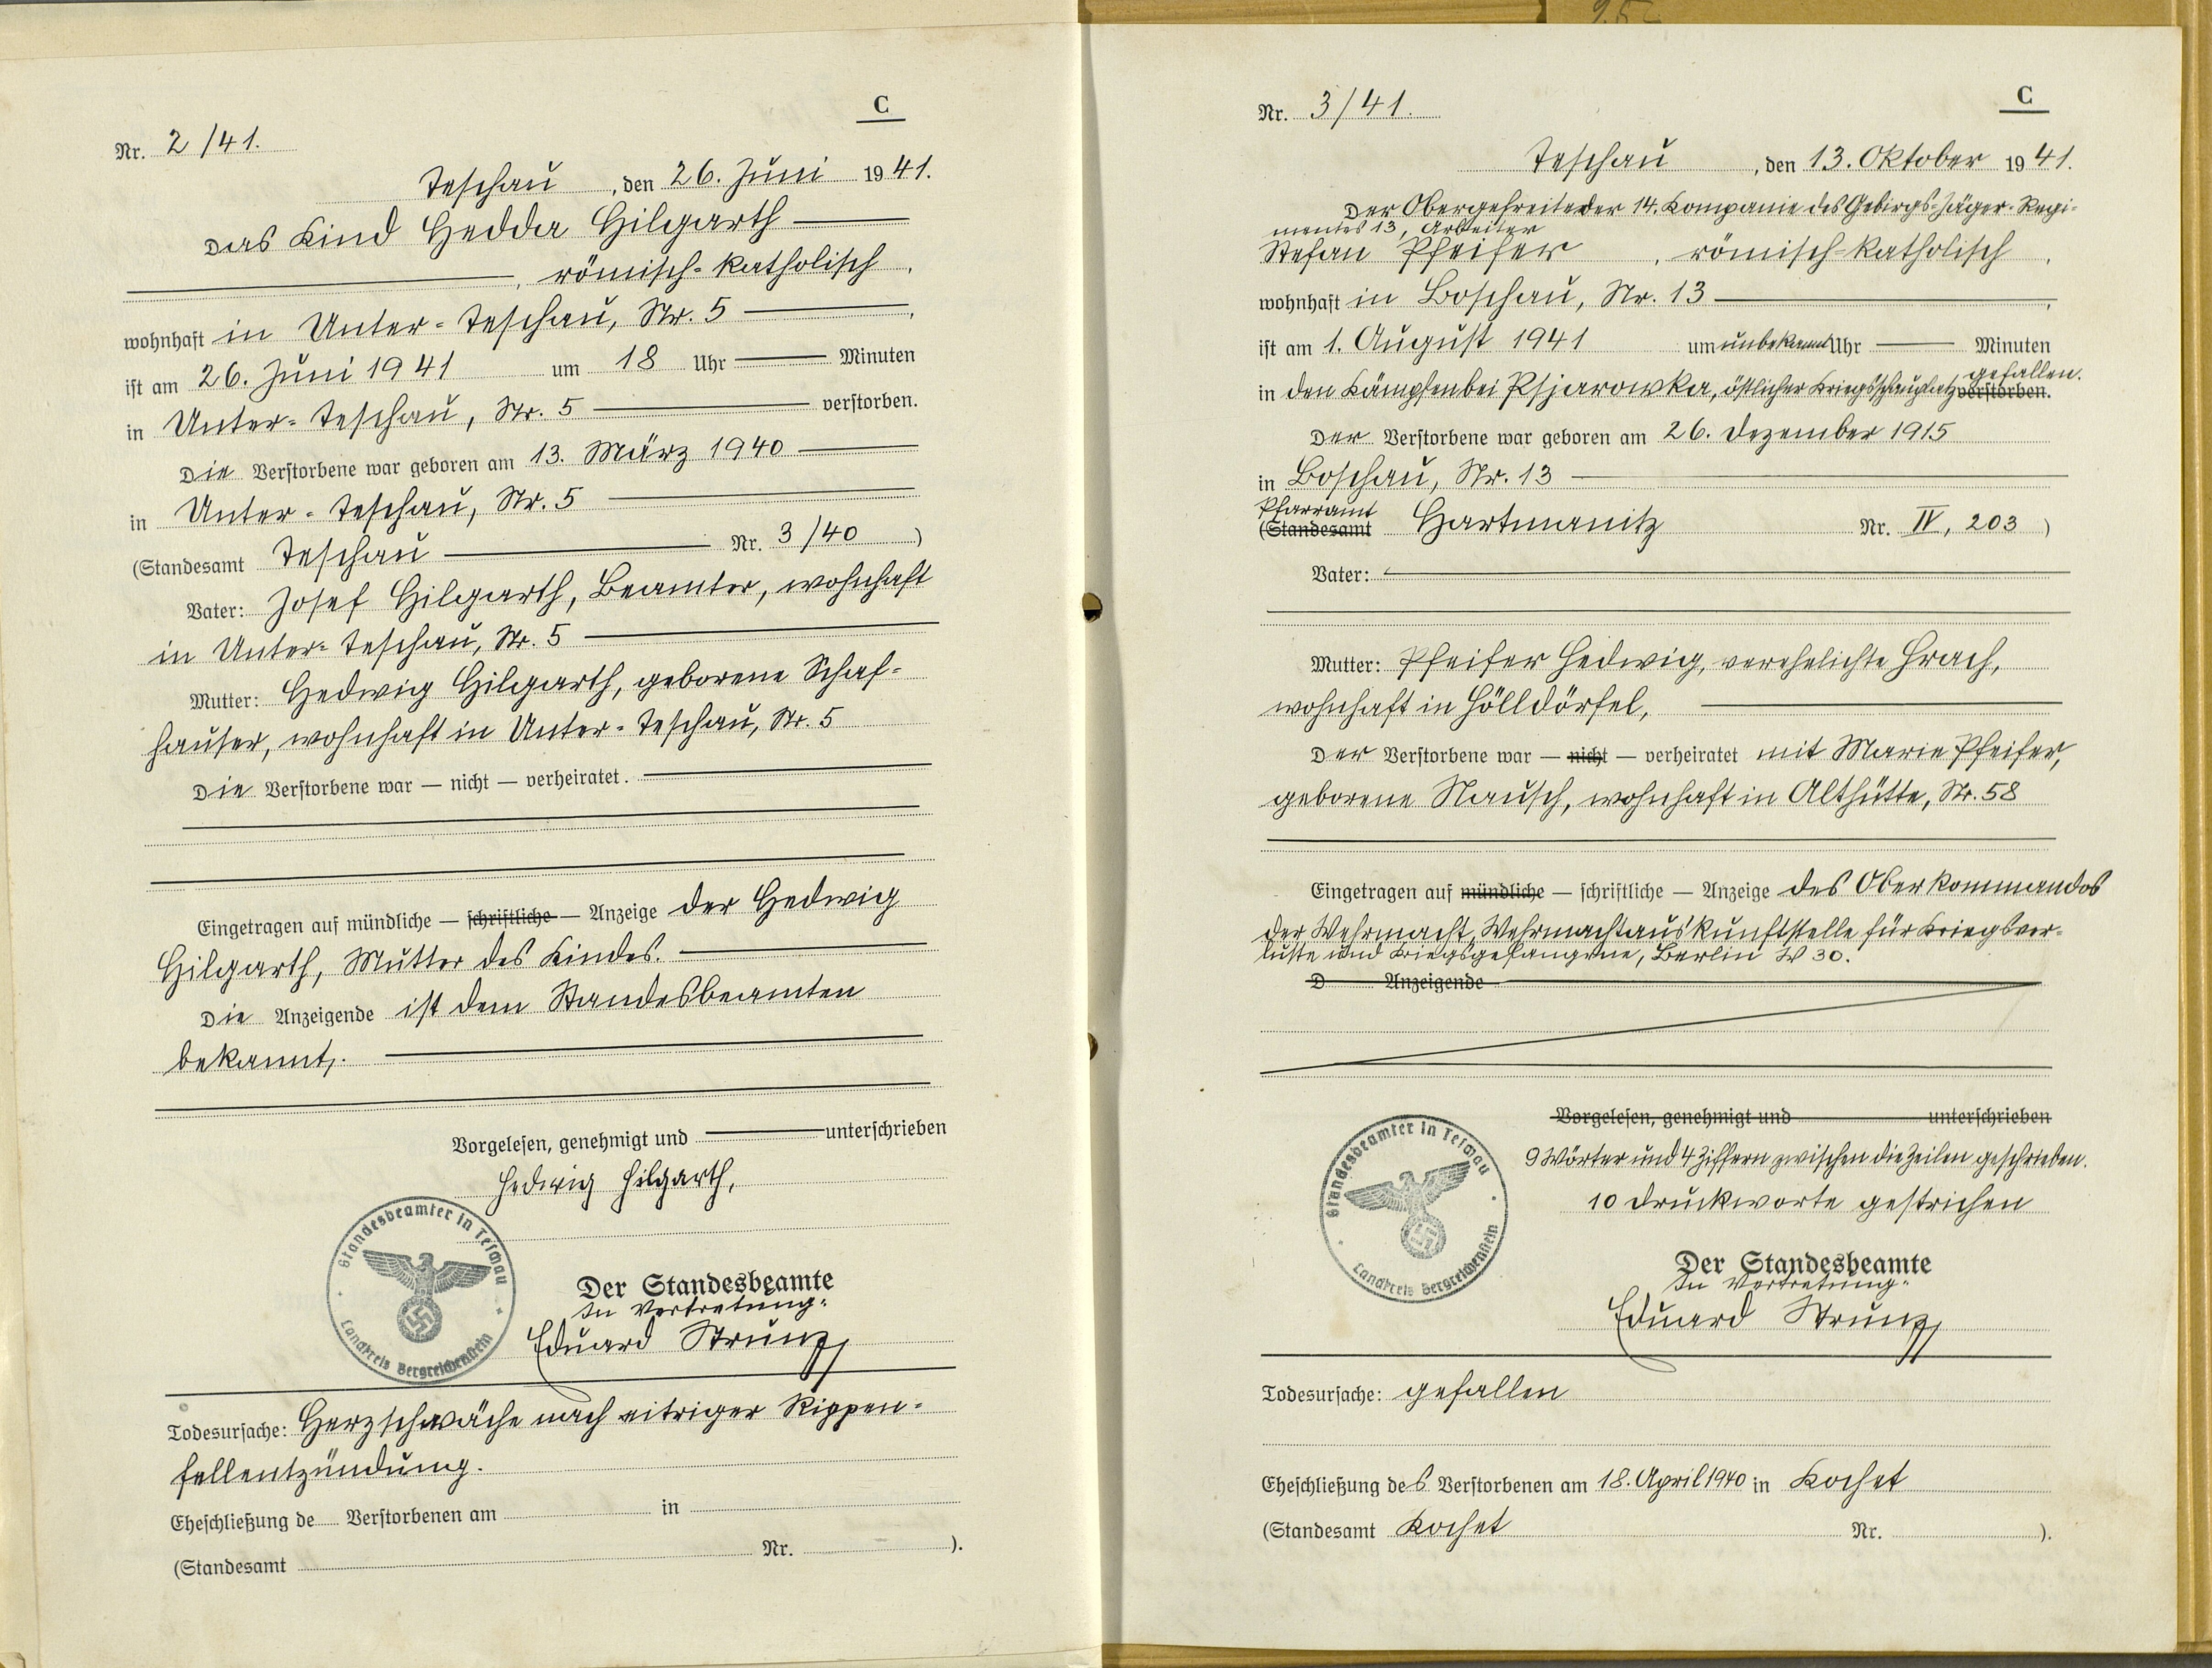 C
Nr. 2/41.
Teschau, den 26. Juni 1941.
Das Kind Hedda Hilgarth
, römisch-katholisch,
wohnhaft in Unter-Teschau, Nr. 5,
ist am 26. Juni 1941 um 18 Uhr Minuten
in Unter-Teschau, Nr. 5 verstorben.
Die Verstorbene war geboren am 13. März 1940
in Unter-Teschau, Nr. 5
(Standesamt Teschau Nr. 3/40)
Vater: Josef Hilgarth, Beamter, wohnhaft
in Unter-Teschau, Nr. 5
Mutter: Hedwig Hilgarth, geborene Schaf-
hauser, wohnhaft in Unter-Teschau, Nr. 5
Die Verstorbene war — nicht — verheiratet.
Eingetragen auf mündliche — schriftliche — Anzeige der Hedwig
Hilgarth, Mutter des Kindes.
Die Anzeigende ist dem Standesbeamten
bekannt,.
Vorgelesen, genehmigt und unterschrieben
Hedwig Hilgarth,
Standesbeamter in Teschau
Landkreis Bergreichenstein
Der Standesbeamte
In Vertretung:
Eduard Strunz
Todesursache: Herzschwäche nach eitriger Rippen-
fellentzündung.
Eheschließung de Verstorbenen am in
(Standesamt Nr. ).
C
Nr. 3/41.
Teschau, den 13. Oktober 1941.
Der Obergefreite der 14. Kompanie des Gebirgs-Jäger-Regi-
mentes 13, Arbeiter
Stefan Pfeifer, römisch-katholisch,
wohnhaft in Boschau, Nr. 13,
ist am 1. August 1941 um unbekannt Uhr Minuten
gefallen.
in den Kämpfen bei Psjarowka, östlicher Kriegsschauplatz verstorben.
Der Verstorbene war geboren am 26. Dezember 1915
in Boschau, Nr. 13
Pfarramt
(Standesamt Hartmanitz Nr. IV, 203)
Vater:
Mutter: Pfeifer Hedwig, verehelichte Hrach,
wohnhaft in Hölldörfel,
Der Verstorbene war — nicht — verheiratet mit Marie Pfeifer,
geborene Nausch, wohnhaft in Althütte, Nr. 58
Eingetragen auf mündliche — schriftliche — Anzeige des Oberkommandos
der Wehrmacht, Wehrmachtauskunftstelle für Kriegsver-
luste und Kriegsgefangene, Berlin W 30.
D Anzeigende
Vorgelesen, genehmigt und unterschrieben
9 Wörter und 4 Ziffern zwischen die Zeilen geschrieben.
10 Druckworte gestrichen
Standesbeamter in Teschau
Landkreis Bergreichenstein
Der Standesbeamte
In Vertretung:
Eduard Strunz
Todesursache: gefallen
Eheschließung des Verstorbenen am 18. April 1940 in Kochet
(Standesamt Kochet Nr. ).